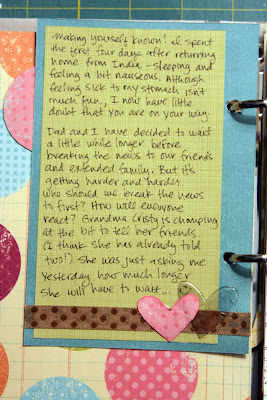 making yourself known! I spent
the first four days after returning
home from India - sleeping and
feeling a bit nauseous. Although
feeling sick to my stomach isn't
much fun, I now have little
doubt that you are on your way.
Dad and I have decided to wait
a little while longer before
breaking the news to our friends
and extended family. But it's
getting harder and harder.
Who should we break the news
to first? How will everyone
react? Grandma Cristy is chomping
at the bit to tell her friends
(I think she has already told
two!). She was just asking me
yesterday how much longer
she will have to wait...